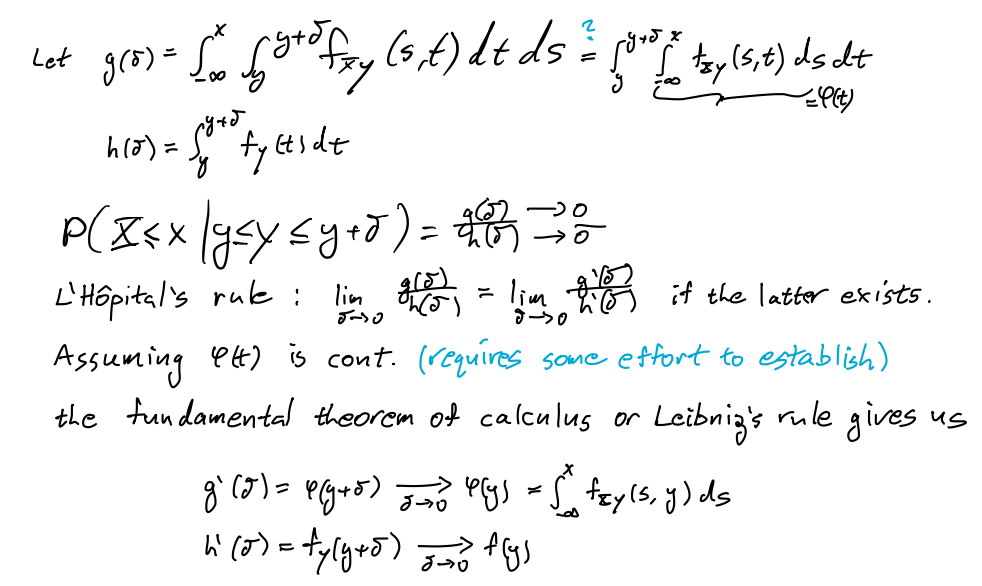 Let g(δ) = ∫_{-∞}^{x} ∫_{y}^{y+δ} f_{XY}(s,t) dt ds =^{?} ∫_{y}^{y+δ} ∫_{-∞}^{x} f_{XY}(s,t) ds dt
= φ(t)
h(δ) = ∫_{y}^{y+δ} f_Y(t) dt
P(X ≤ x | y ≤ Y ≤ y+δ) = g(δ)/h(δ) →0/→0
L'Hôpital's rule : lim_{δ→0} g(δ)/h(δ) = lim_{δ→0} g'(δ)/h'(δ) if the latter exists.
Assuming φ(t) is cont. (requires some effort to establish)
the fundamental theorem of calculus or Leibniz's rule gives us
g'(δ) = φ(y+δ) →_{δ→0} φ(y) = ∫_{-∞}^{x} f_{XY}(s,y) ds
h'(δ) = f_Y(y+δ) →_{δ→0} f(y)